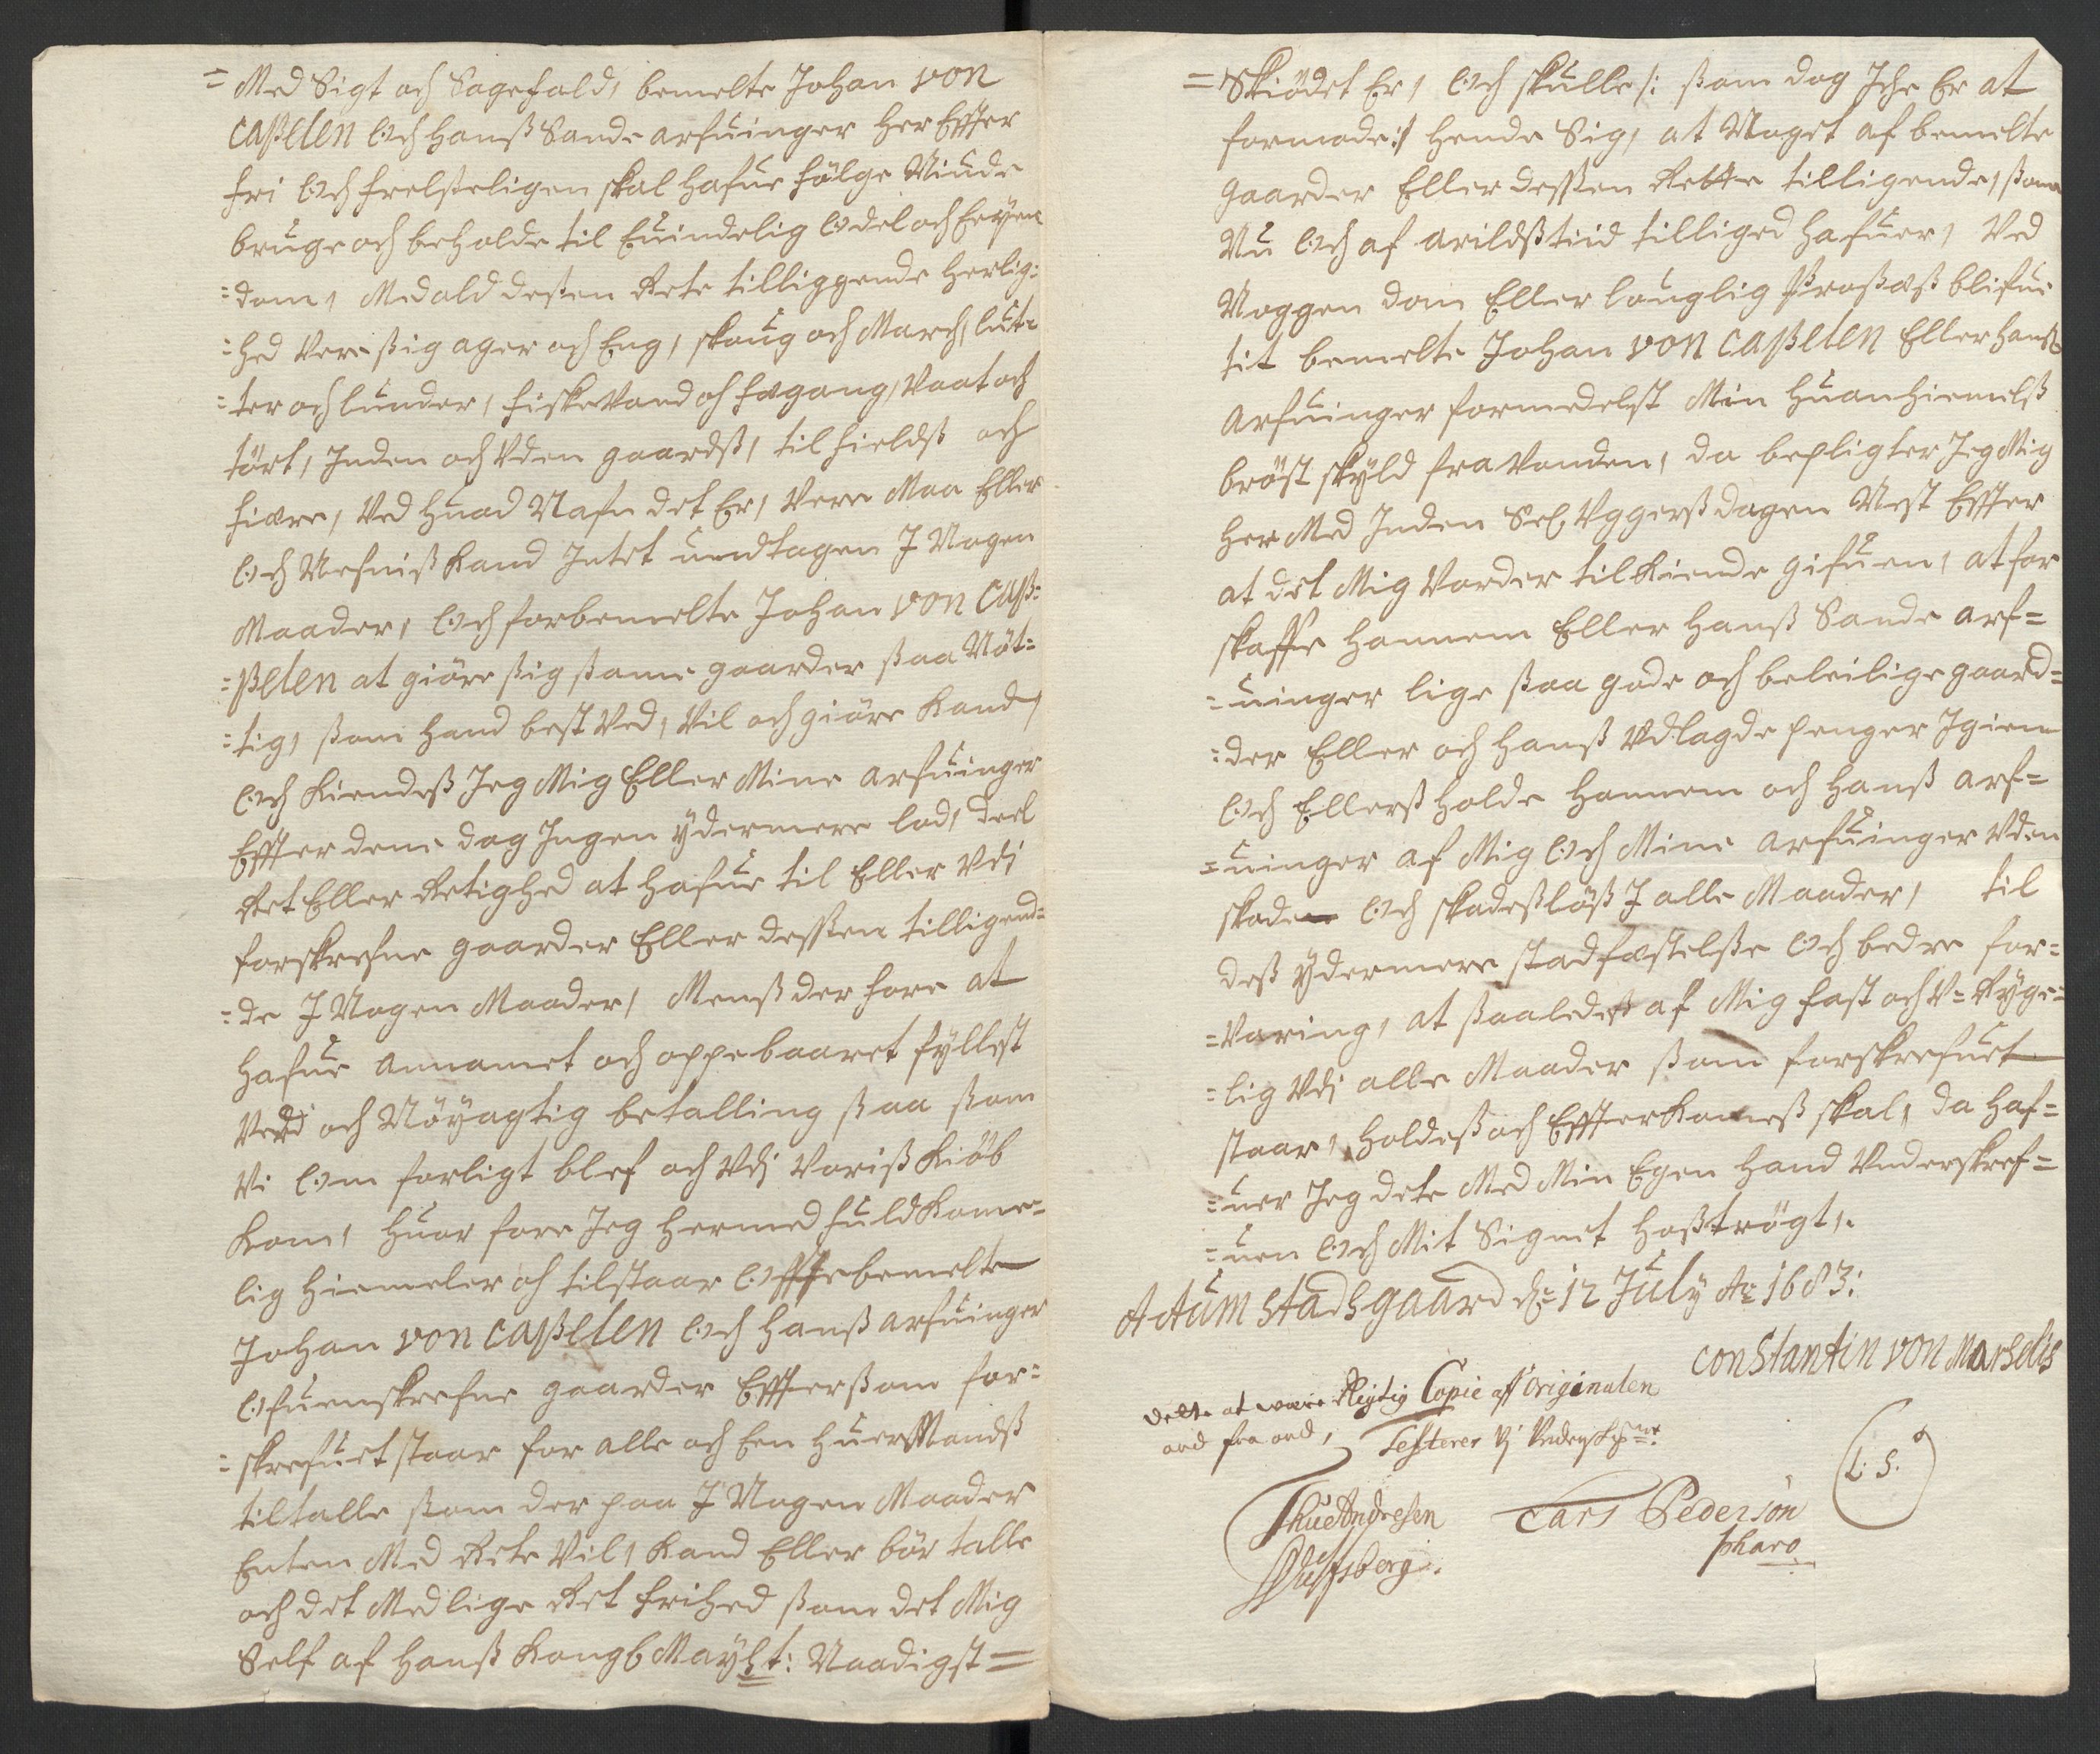 = Med Sigt och Sagefald, bemelte Johan von
Casselen Och Hanß Sande arfuinger Her Effter
fri Och frelßeligen skal Hafue følge Niude
bruge och beholde til Euindelig Odel och Eeyen
=dom, Med ald deßen Rete tilliggende Herlig:
=hed Vere ßig ager och Eng, skoug och March, lut=
=ter och lunder, fiskevand och fægang, Vaat och
tørt, Inden och Vden gaardß, til fieldß och
fiære, Ved Huad Nafn det Er, Vere Maa Eller
Och Nefniß kand Intet undtagen I Nogen
Maader, Och forbemelte Johan von Caß=
=ßelen at giøre ßig ßame gaarder ßaa Nøt=
=tig, ßom Hand best Ved, Vil och giøre Kand,
Och Kiendeß Jeg Mig Eller Mine arfuinger
Effter dene dag Ingen ydermere lod, deel
Ret Eller Retighed at Hafue til Eller Vdj
forskrefne gaarder Eller deßen tilligend=
=de I Nogen Maader, Menß der fore at
Hafue annamet och oppebaaret fyllest
Verd och Nøyagtig betalling ßaa ßom
Vi Om forligt blef och Vdj Voriß Kiøb
Kom, Huor fore Jeg Hermed fuldKome=
lig Hiemeler och tilstaar Offtebemelte
Johan von Casselen Och Hanß arfuinger
Ofuenskrefne gaarder Effterßom for=
=skrefuet staar for alle och Een Huer Mandß
tiltalle ßom der paa I Nogen Maader
Enten Med Rete Vil, Kand Eller bør talle
och det Med lige Ret frihed ßom det Mig
Self af Hanß Kongl Mayht: Naadigst =
= Skiødet Er, Och skulle /: ßom dog Iche Er at
formode :/ Hende Sig, at Noget af bemelte
gaarder Eller deßen Rette tilligende, ßom
Nu Och af arildßtiid tilliged Hafuer, Ved
Noggen dom Eller louglig Proßæß blifue
tit bemelte Johan von Casselen Eller Hanß
Arfuinger formedelst Min Huan Hiemelß
brøst skyld fra Vonden, da bepligter Jeg Mig
Her Med Inden Sex Vggerß dagen Nest Effter
at det Mig Vorder til Kiende gifuen, at for
skaffe Hannem Eller Hanß Sande arf=
=uinger lige ßaa gode och beleilige gaard=
=der Eller och Hanß Vdlagde penger Igien
Och Ellerß Holde Hannem och Hanß arf=
=uinger af Mig Och Mine arfuinger Vden
skade Och skadeßløß I alle Maader, til
deß ydermere stadfæstelße Och bedre for=
=Varing, at ßaaledeß af Mig fast och V=Ryge=
=lig Vdj alle Maader ßom forskrefuet
staar, Holdeß och EffterKomeß skal, da Haf=
=uer Jeg dete Med Min Egen Hand Vnderskref=
=uen Och Mit Signet Hoßtrøgt.
Actum Stadsgaard dn 12 July Ao 1683:
Constantin von Marselis
Dette at være Rigtig Copie aff Originalen
ord fra ord, Testerer Vj
L: S.
Thue Andresen Lars Pedersøn
pharo